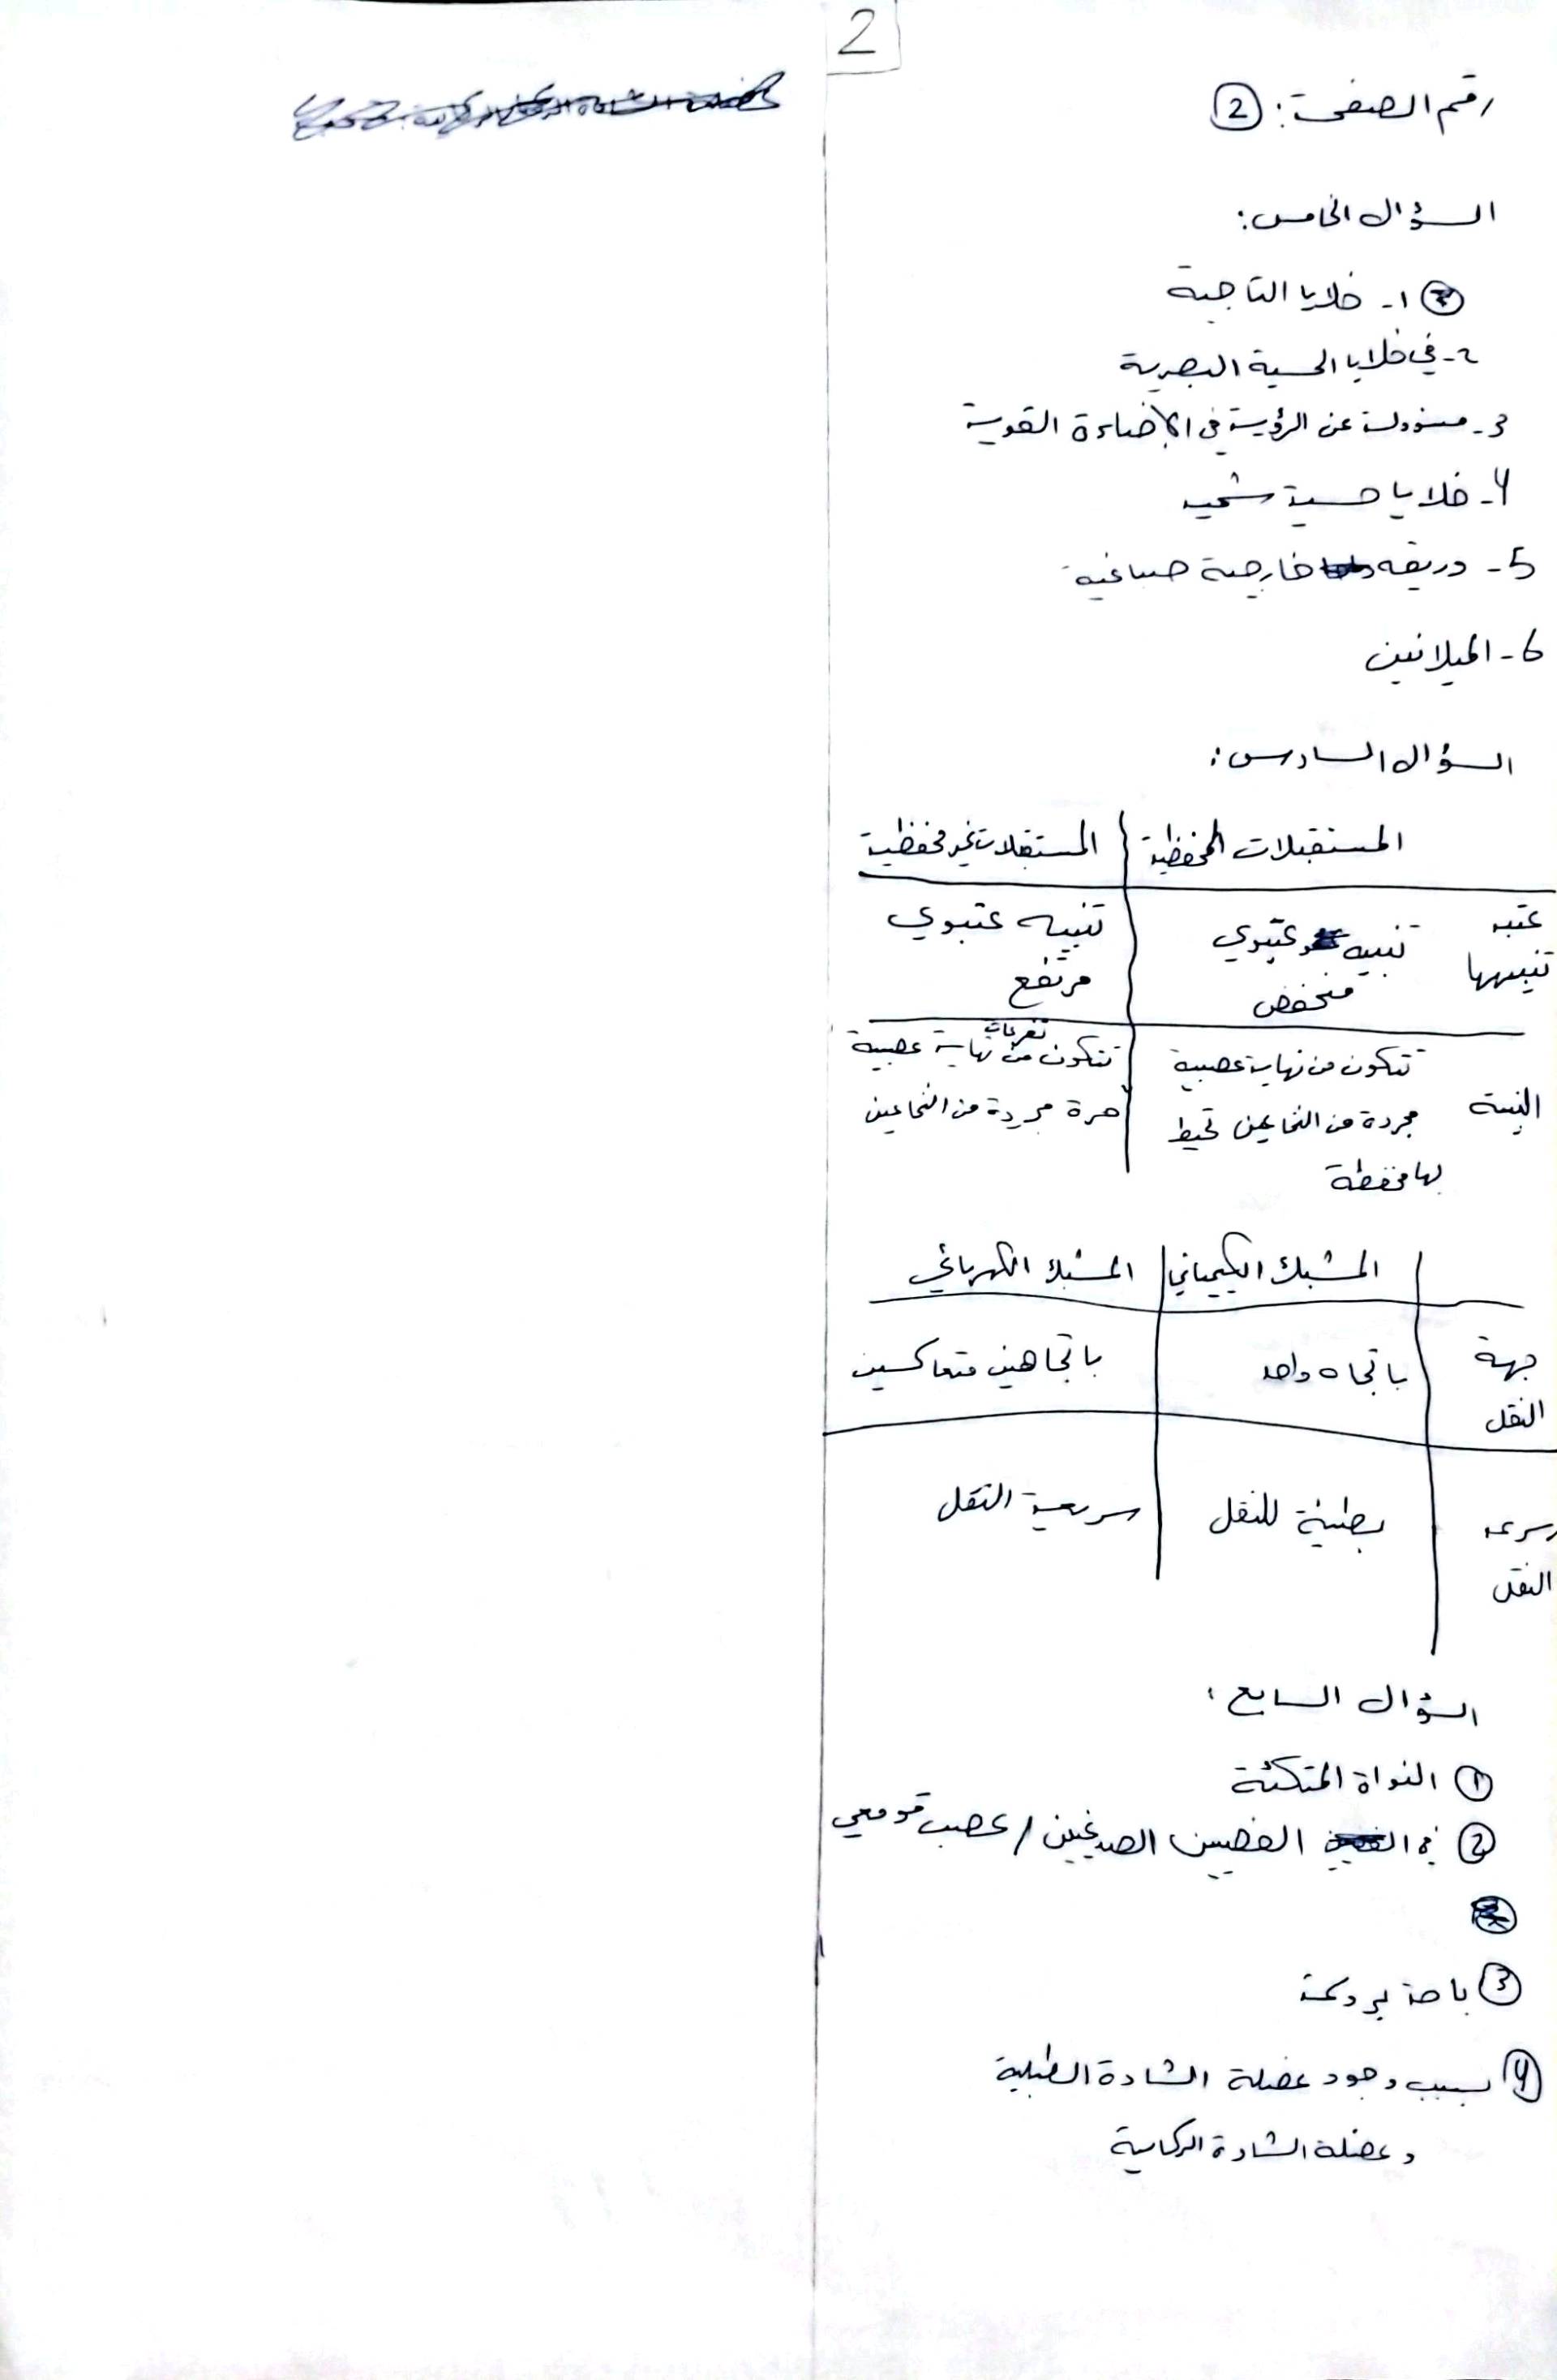 2
رقم الصفحة: 2
السؤال الخامس:
1- خلايا التاجية
2- في خلايا الحسية البصرية
3- مسؤولة عن الرؤية في الإضاءة القوية
4- خلايا حسية شمية
5- وريقة خارجية صباغية
6- الميلانين
السؤال السادس:
المستقبلات المحفظية | المستقبلات غير محفظية
عتبة تنبيهها | تنبيه عتبوي منخفض | تنبيه عتبوي مرتفع
البنية | تتكون من نهاية عصبية مجردة من النخاعين تحيط بها محفظة | تتكون من تفرعات نهاية عصبية حرة مجردة من النخاعين
المشبك الكيميائي | المشبك الكهربائي
جهة النقل | باتجاه واحد | باتجاهين متعاكسين
سرعة النقل | بطيئة للنقل | سريعة النقل
السؤال السابع:
1 النواة المتكئة
2 في الفصين الصدغيين / عصب قوقعي
3 باحة بروكة
4 بسبب وجود عضلة الشادة الطبلية
وعضلة الشادة الركابية